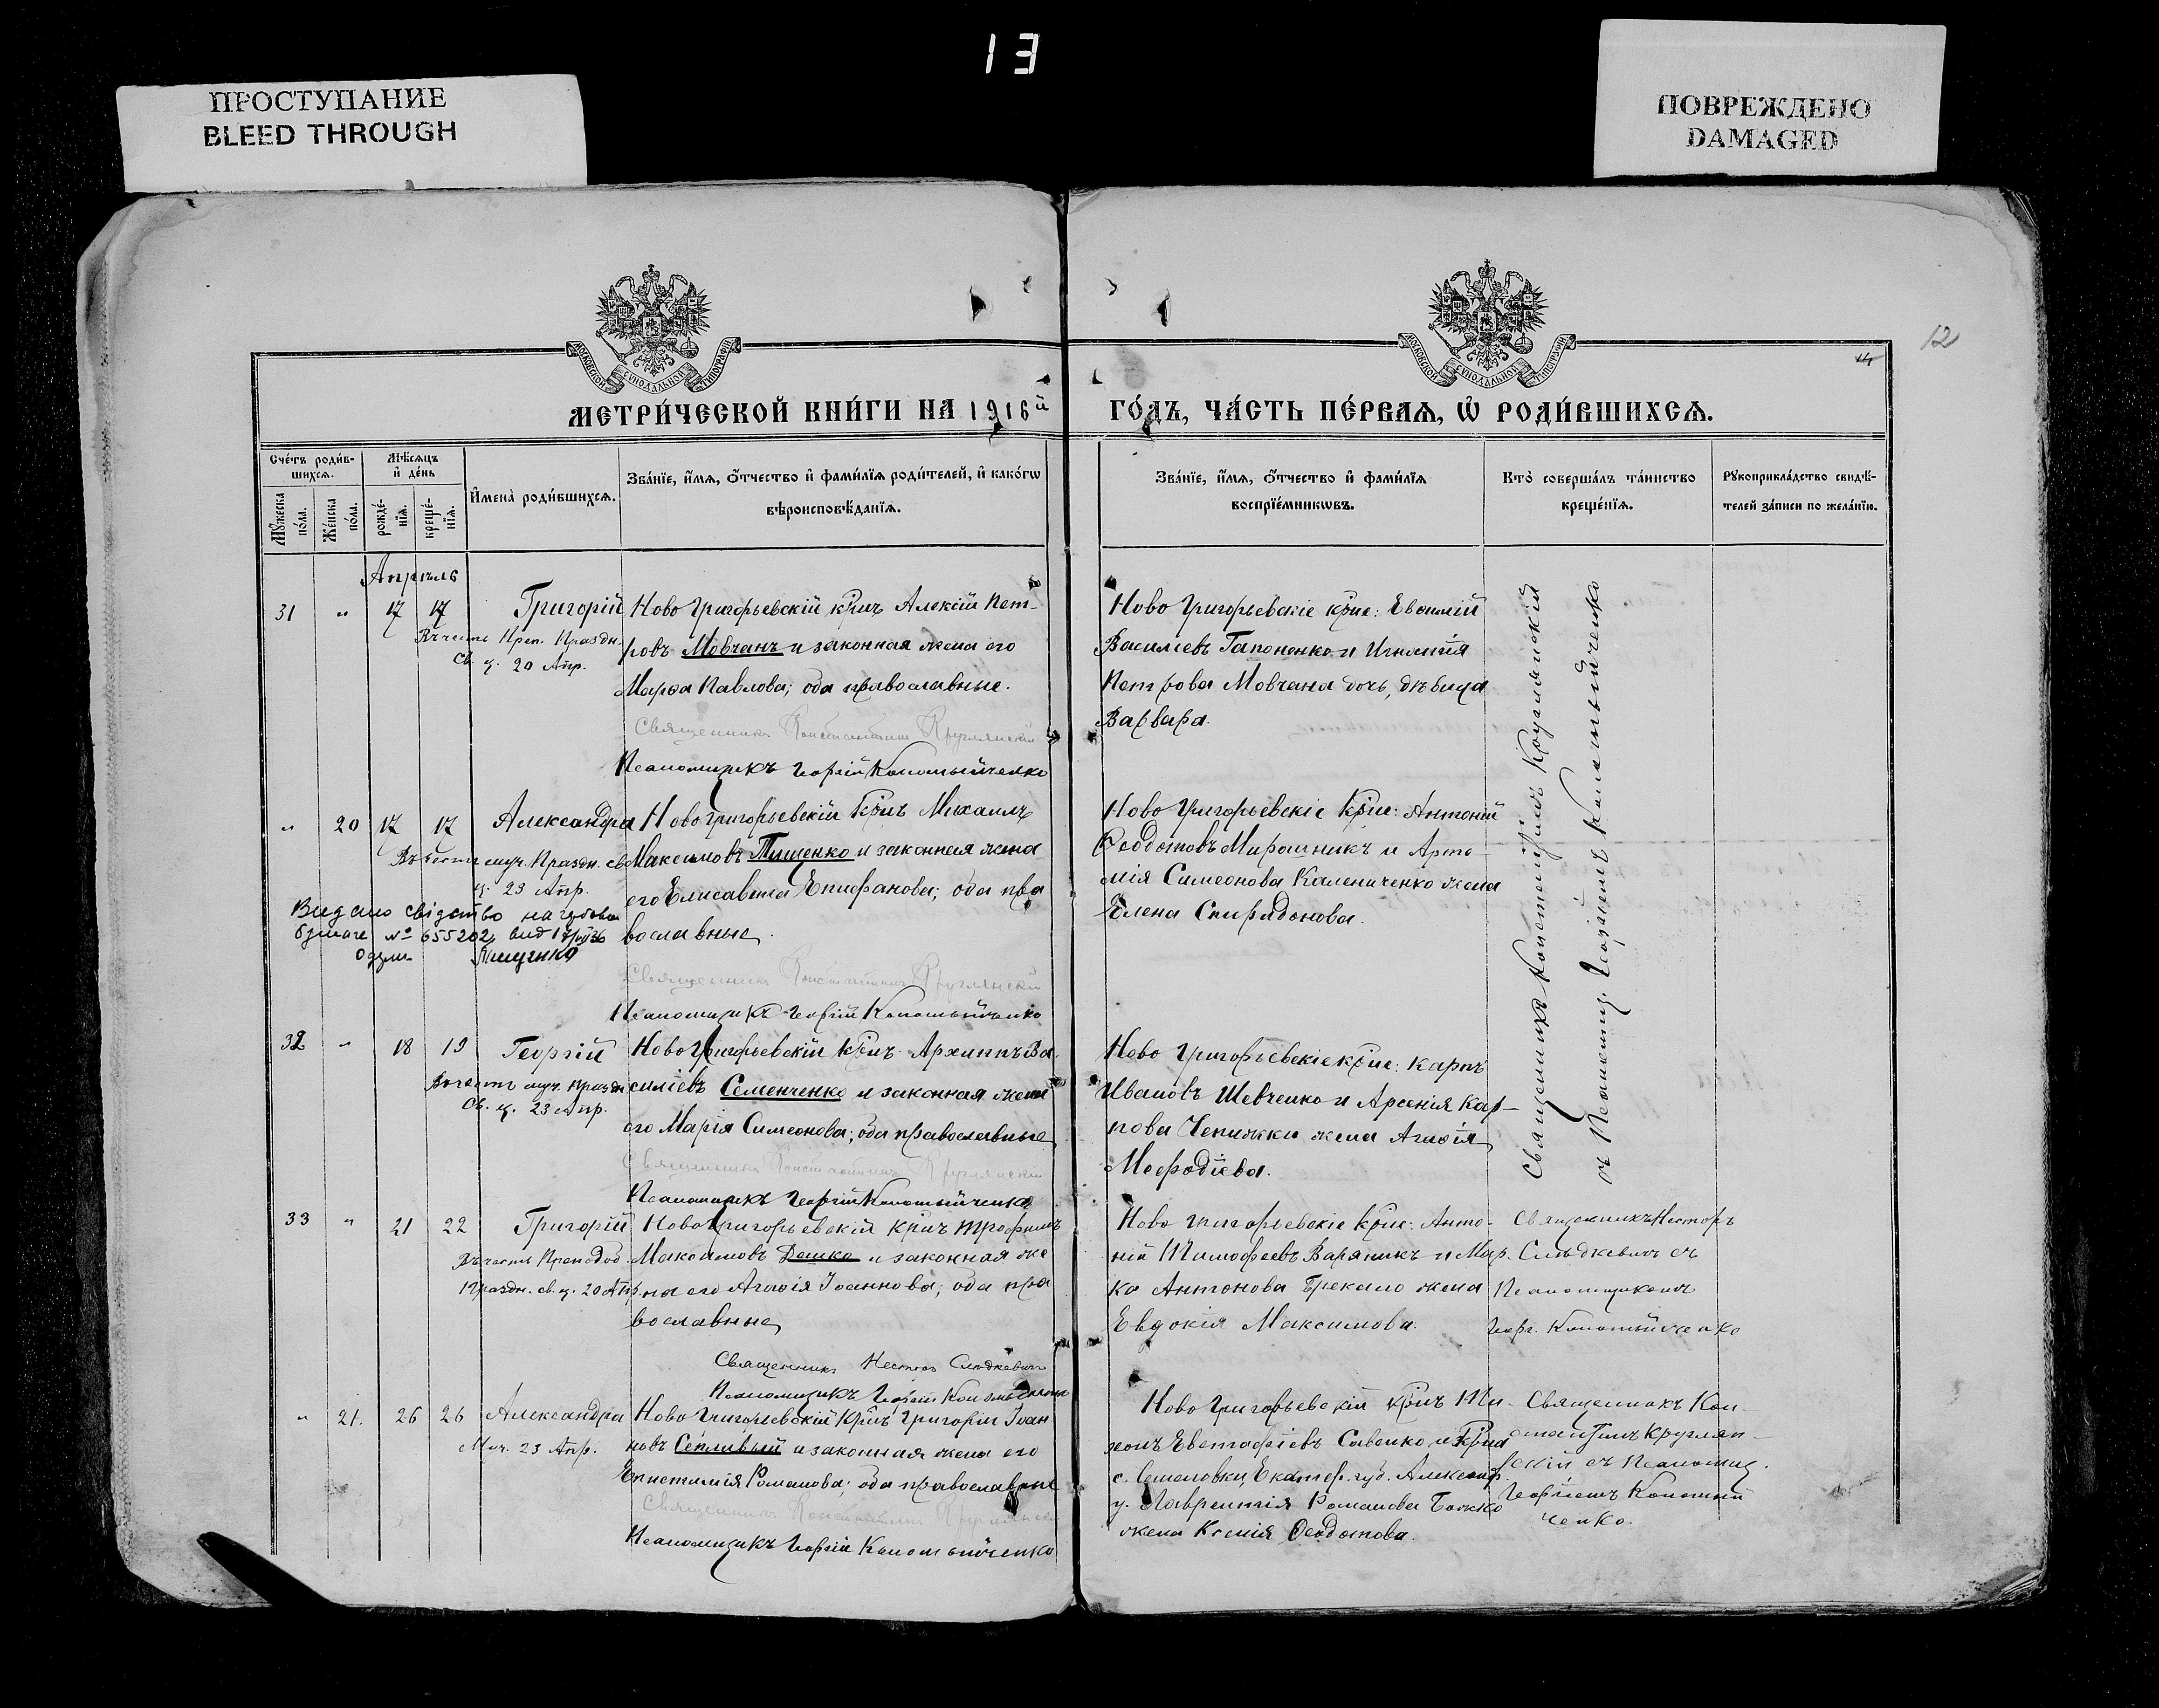 13
ПРОСТУПАНИЕ
BLEED THROUGH
ПОВРЕЖДЕНО
DAMAGED
12
МОСКОВСКОЙ СѴНОДАЛЬНОЙ ТИПОГРАФІИ
МОСКОВСКОЙ СѴНОДАЛЬНОЙ ТИПОГРАФІИ
МЕТРИ́ЧЕСКОЙ КНИ́ГИ НА 1916й
ГО́ДЪ, ЧА́СТЬ ПЕ́РВАѦ, Ѡ҆ РОДИ́ВШИХСѦ.
Сче́тъ роди́в-
шихсѧ.
Мѣ́сѧцъ
и҆ де́нь
Мꙋ́жеска
по́ла.
Же́нска
по́ла.
рожде́-
нїѧ.
креще́-
нїѧ.
И҆мена̀ роди́вшихсѧ.
Зва́нїе, и҆́мѧ, ѻ҆́тчество и҆ фами́лїѧ роди́телей, и҆ како́гѡ
вѣроисповѣ́данїѧ.
Зва́нїе, и҆́мѧ, ѻ҆́тчество и҆ фами́лїѧ
воспрїе́мникѡвъ.
Кто̀ соверша́лъ та́инство
креще́нїѧ.
Рꙋкоприкла́дство свидѣ́-
телей за́писи по жела́нїю.
Апрѣль
31 " 17 17 Григорій
Въ честь Преп. Праздн.
св. ц. 20 Апр.
Ново Григорьевскій крнъ Алексій Пет-
ровъ Мовчанъ и законная жена его
Марѳа Павлова; оба православные.
Священникъ Константинъ Круглянскій
Псаломщикъ Георгій Коломыйченко
Ново Григорьевскіе крне: Евѳимій
Василіевъ Гапоненко и Игнатія
Петрова Мовчана дочь, дѣвица
Варвара.
" 20 17 17 Александра
Въ честь муч. Праздн. св.
ц. 23 Апр.
Видано свідоцтво на гербовом
бумаге № 655202
Тищенко
Ново Григорьевскій крнъ Михаилъ
Максимовъ Тищенко и законная жена
его Елисавета Епифанова; оба пра
вославные.
Священникъ Константинъ Круглянскій
Псаломщикъ Георгій Коломыйченко
Ново Григорьевскіе крне: Антоній
Ѳеодотовъ Мирошникъ и Арте-
мія Симеонова Калениченко жена
Елена Спиридонова.
32 " 18 19 Георгій
Въ честь муч. Праздн
св. ц. 23 Апр.
Ново Григорьевскій крнъ Архиппъ Ва-
силіевъ Семенченко и законная жена
его Марія Симеонова; оба православные
Священникъ Константинъ Круглянскій
Псаломщикъ Георгій Коломыйченко
Ново Григорьевскіе крне: Карпъ
Ивановъ Шевченко и Арсенія Кар-
пова Чепижки жена Агаѳія
Меѳодіева.
Священникъ Константинъ Круглянскій
съ Псаломщ. Георгіемъ Коломыйченко
33 " 21 22 Григорій
Въ честь Преподоб.
Праздн. св. ц. 20 Апр.
Ново Григорьевскій крнъ Трофимъ
Максимовъ Дешко и законная же
на его Агаѳія Іоаннова; оба пра
вославные,
Священникъ Несторъ Слѣдкевичъ
Псаломщикъ Георгій Коломыйченко
Ново Григорьевскіе крне: Анто-
ній Тимофеевъ Варяникъ и Мар-
ка Антонова Брекало жена
Евдокія Максимова.
Священникъ Несторъ
Слѣдкевичъ съ
Псаломщикомъ
Георг. Коломыйченко
" 21. 26 26 Александра
Муч. 23 Апр.
Ново Григорьевскій крнъ Григорій Іоан
новъ Сепливый и законная жена его
Епистимія Романова; оба православные
Священникъ Константинъ Круглянскій
Псаломщикъ Георгій Коломыйченко
Ново Григорьевскій крнъ Ти-
хонъ Евстафіевъ Савенко и крна
с. Семеловки, Екатер. губ. Александр.
у. Лаврентія Романова Божко
жена Ксенія Ѳеодотова.
Священникъ Кон-
стантинъ Круглян-
скій съ Псаломщ.
Георгіемъ Коломый
ченко.